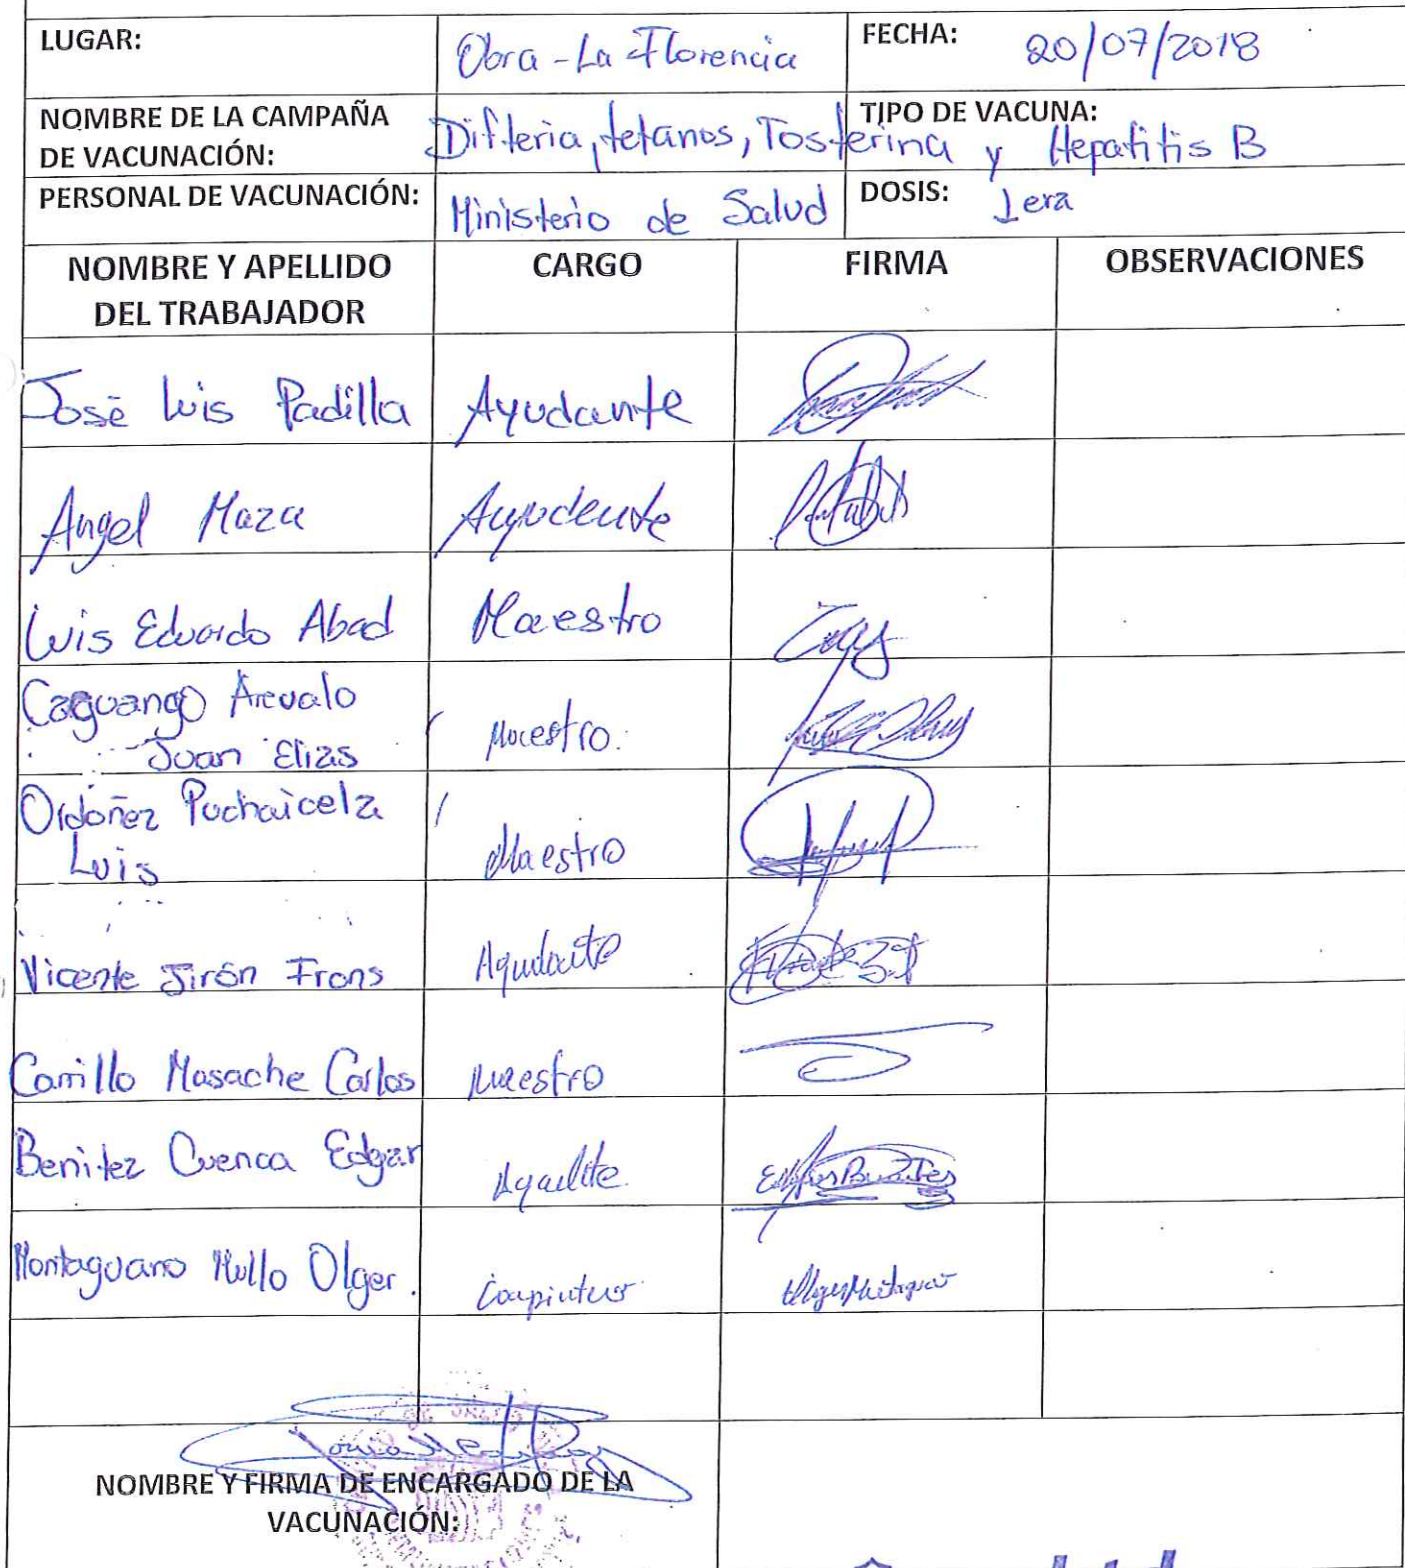 LUGAR: Obra - La Florencia FECHA: 20/07/2018
NOMBRE DE LA CAMPAÑA TIPO DE VACUNA:
DE VACUNACIÓN: Difteria, tetanos, Tosferina y Hepatitis B
PERSONAL DE VACUNACIÓN: Ministerio de Salud DOSIS: 1era
NOMBRE Y APELLIDO CARGO FIRMA OBSERVACIONES
DEL TRABAJADOR
José Luis Padilla Ayudante
Angel Maza Ayudante
Luis Eduardo Abad Maestro
Caguango Arevalo
Juan Elias Maestro.
Ordoñez Puchaicela
Luis Maestro
Vicente Jirón Frans Ayudante
Carrillo Masache Carlos Maestro
Benitez Cuenca Edgar
Montaguano Mullo Olger. Carpintero
NOMBRE Y FIRMA DE ENCARGADO DE LA
VACUNACIÓN: